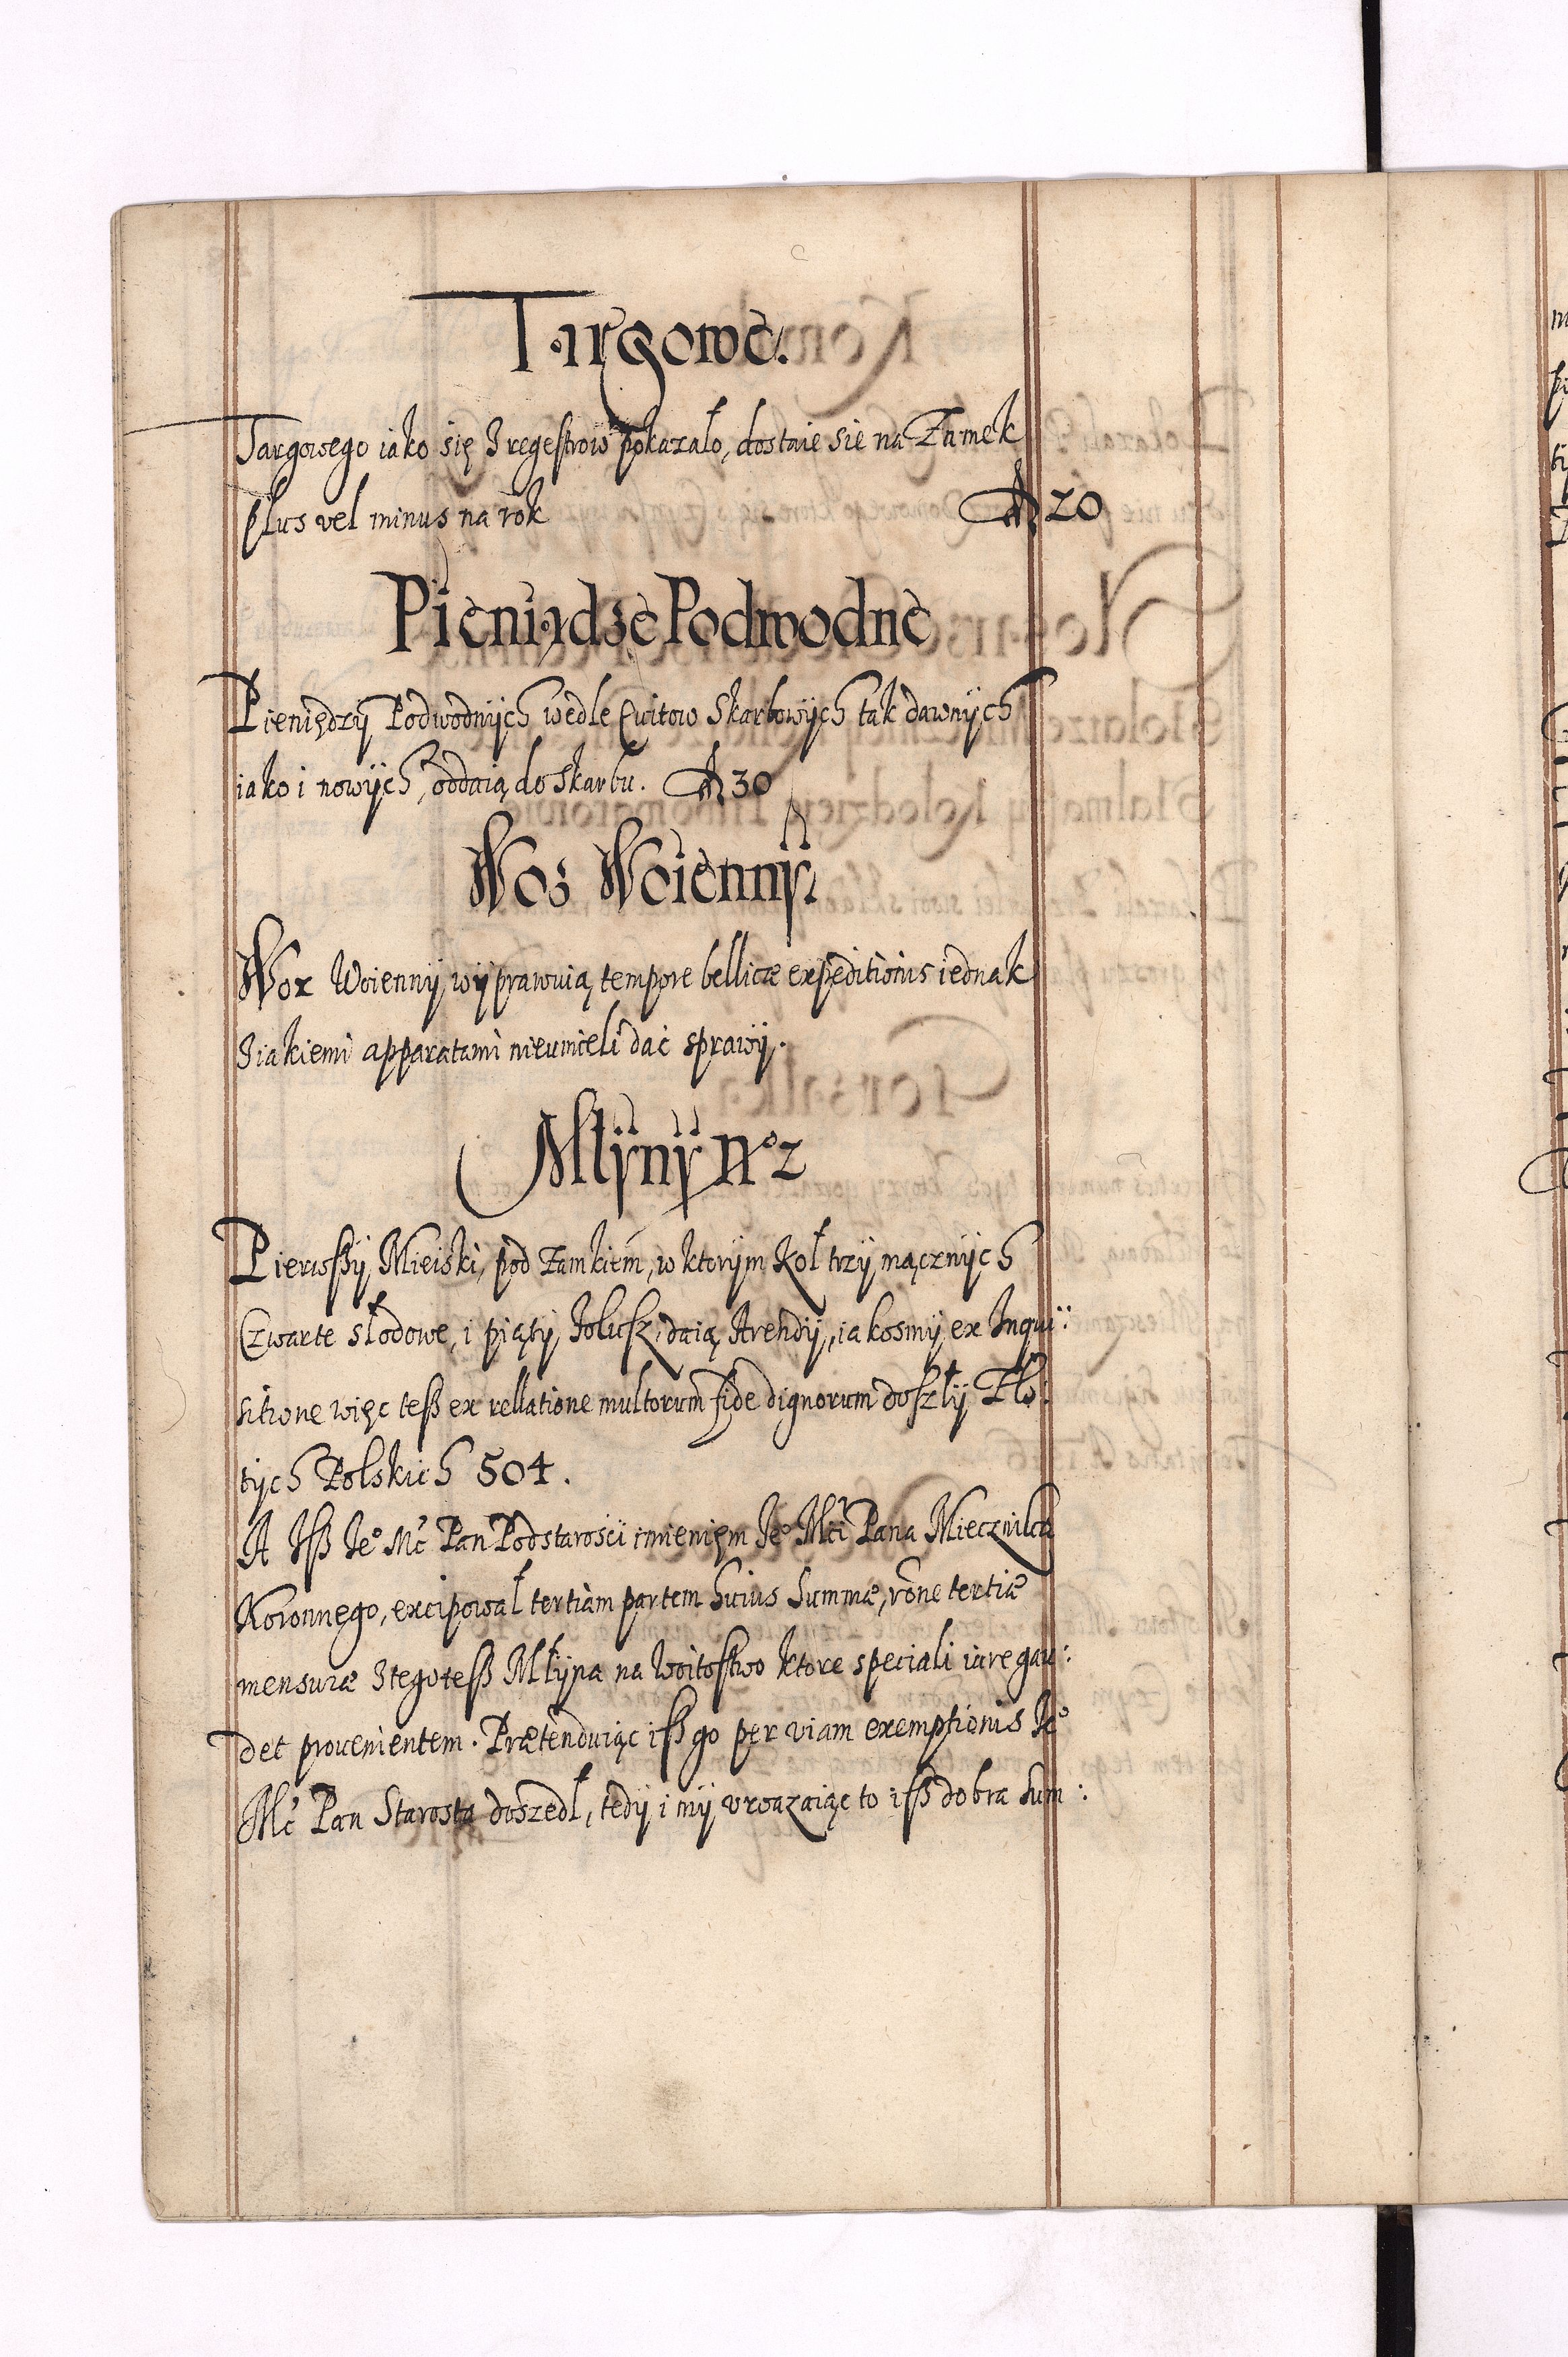 Targowe.
Targowego iako się z regestrow pokazało, dostaie sie na Zamek
plus vel minus na rok 20
Pieniądze Podwodne
Pieniędzy Podwodnÿch wedle Cwitow Skarbowÿch tak dawnÿch
iako i nowÿch, oddaią do skarbu. 30
Woz Woiennÿ
Woz Woiennÿ wÿprawuią tempore bellicæ expeditionis iednak
z iakiemi apparatami nieumieli dać sprawÿ.
Młÿnÿ No 2
Pierwßÿ Mieiski, pod Zamkiem, w ktorÿm Koł trzÿ mącznÿch
Czwarte słodowe, i piątÿ, daią Arendÿ, iakosmÿ ex Inqui:
sitione więc teß ex rellatione multorum fide dignorum doszlÿ Zło:
tÿch Polskich 504.
A Iß Jeo Mć Pan Podstarosci imieniem Jeo Mći Pana Miecznika
Koronnego, excipował tertiam partem huius Summæ, rone tertiæ
mensuræ z tego teß Młÿna na Woitostwo ktore speciali iure gau:
det prouenientem. Prætenduiąc iß go per viam exemptionis Jeo
Mć Pan Starosta doszedł, tedÿ i mÿ vwazaiąc to iß dobra Sum: